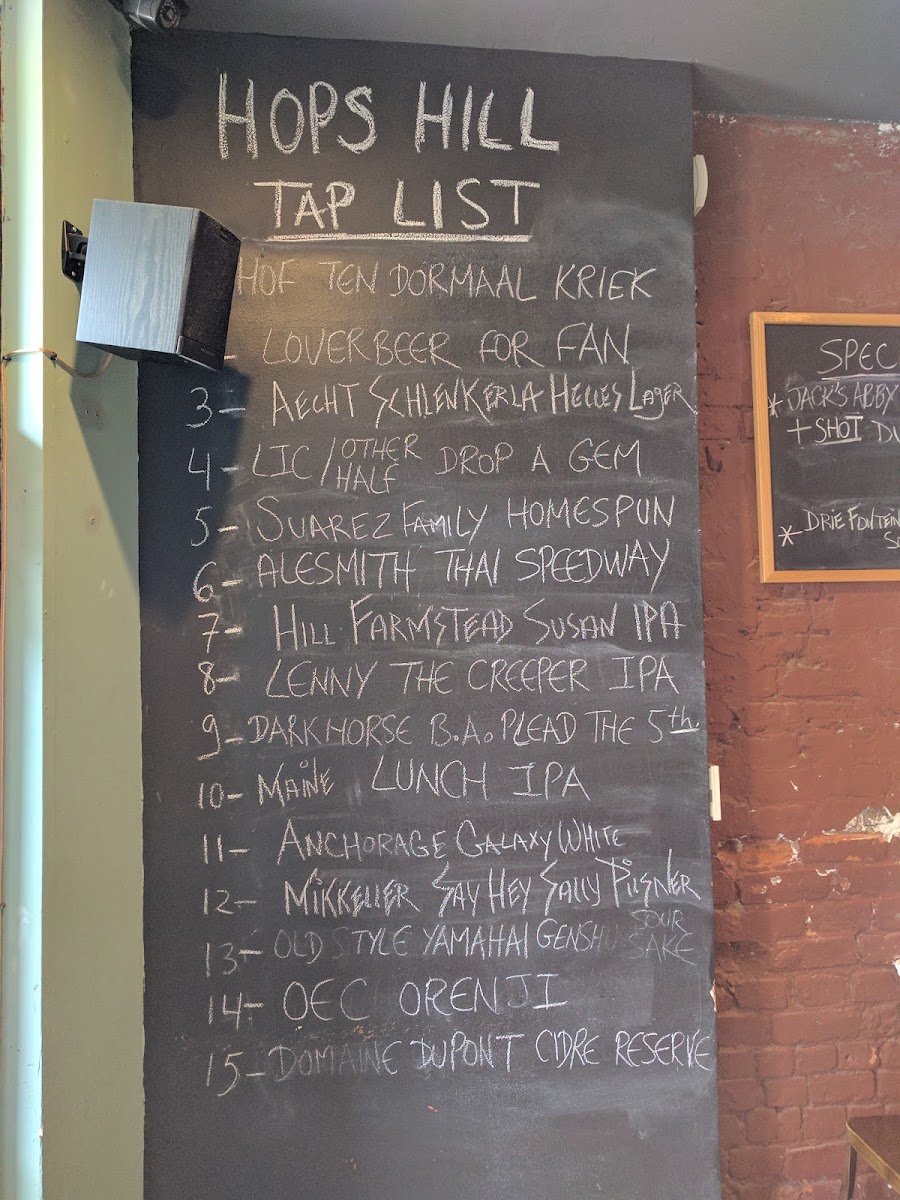 HOPS HILL
TAP LIST
HOF TEN DORMAAL KRIEK
- LOVERBEER FOR FAN
3- AECHT SCHLENKERLA HELLES LAGER
4- LIC/OTHER HALF DROP A GEM
5- SUAREZ FAMILY HOMESPUN
6- ALESMITH THAI SPEEDWAY
7- HILL FARMSTEAD SUSAN IPA
8- LENNY THE CREEPER IPA
9- DARK HORSE B.A. PLEAD THE 5th
10- MAINE LUNCH IPA
11- ANCHORAGE GALAXY WHITE
12- MIKKELLER SAY HEY SALLY PILSNER
13- OLD STYLE YAMAHAI GENSHU SOUR SAKE
14- OEC ORENJI
15- DOMAINE DUPONT CIDRE RESERVE
SPEC
* JACK'S ABBY
+ SHOT DU
* DRIE FONTEIN